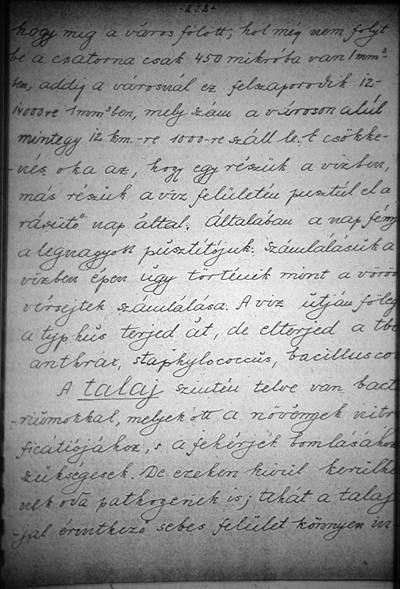 -222-
hogy míg a város fölött, hol még nem folyt
be a csatorna csak 450 mikróba van 1 mm³
ben, addig a városnál ez felszaporodik 12-
14000re 1 mm³ben, mely szám a városon alúl
mintegy 12 km.-re 1000-re száll le. E csökke-
-nés oka az, hogy egy részük a vízben,
más részük a víz felületén pusztúl el a
rásütő nap által. Általában a nap fény
a legnagyobb pusztítójuk. Számlálásuk a
vízben épen úgy történik mint a vörös
vérsejtek számlálása. A víz útján főleg
a typhus terjed át, de elterjed a tbc
anthrax, staphylococcus, bacillus co
A talaj szintén telve van bact
-riumokkal, melyek ott a növények nitri
ficátiójához, s a fehérjék bomlásához
szükségesek. De ezeken kivül kerülhe
nek oda pathogenek is; tehát a talaj
-jal érintkező sebes felület könnyen in-